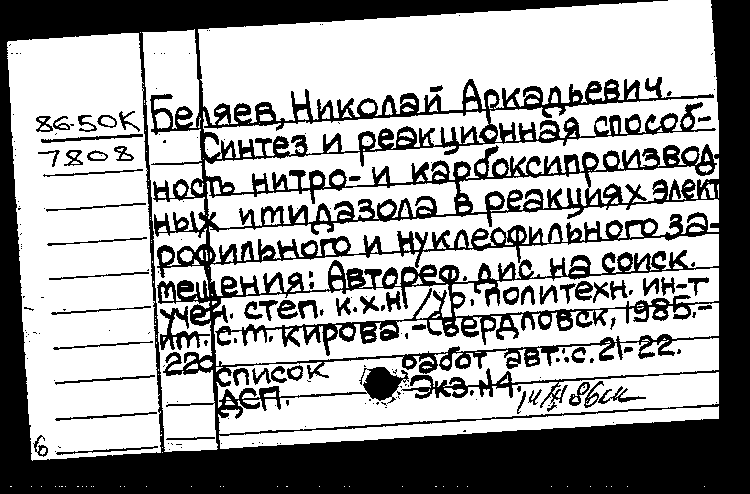 86-50К
7808
Беляев, Николай Аркадьевич.
Синтез и реакционная способ-
ность нитро- и карбоксипроизвод-
ных имидазола в реакциях элект
рофильного и нуклеофильного за-
мещения: Автореф. дис. на соиск.
учен. степ. к.х.н /Ур. политехн. ин-т
им. С.М. Кирова. -Свердловск, 1985.-
22с
список работ авт.: с. 21-22.
ДСП. Экз. N4.
6